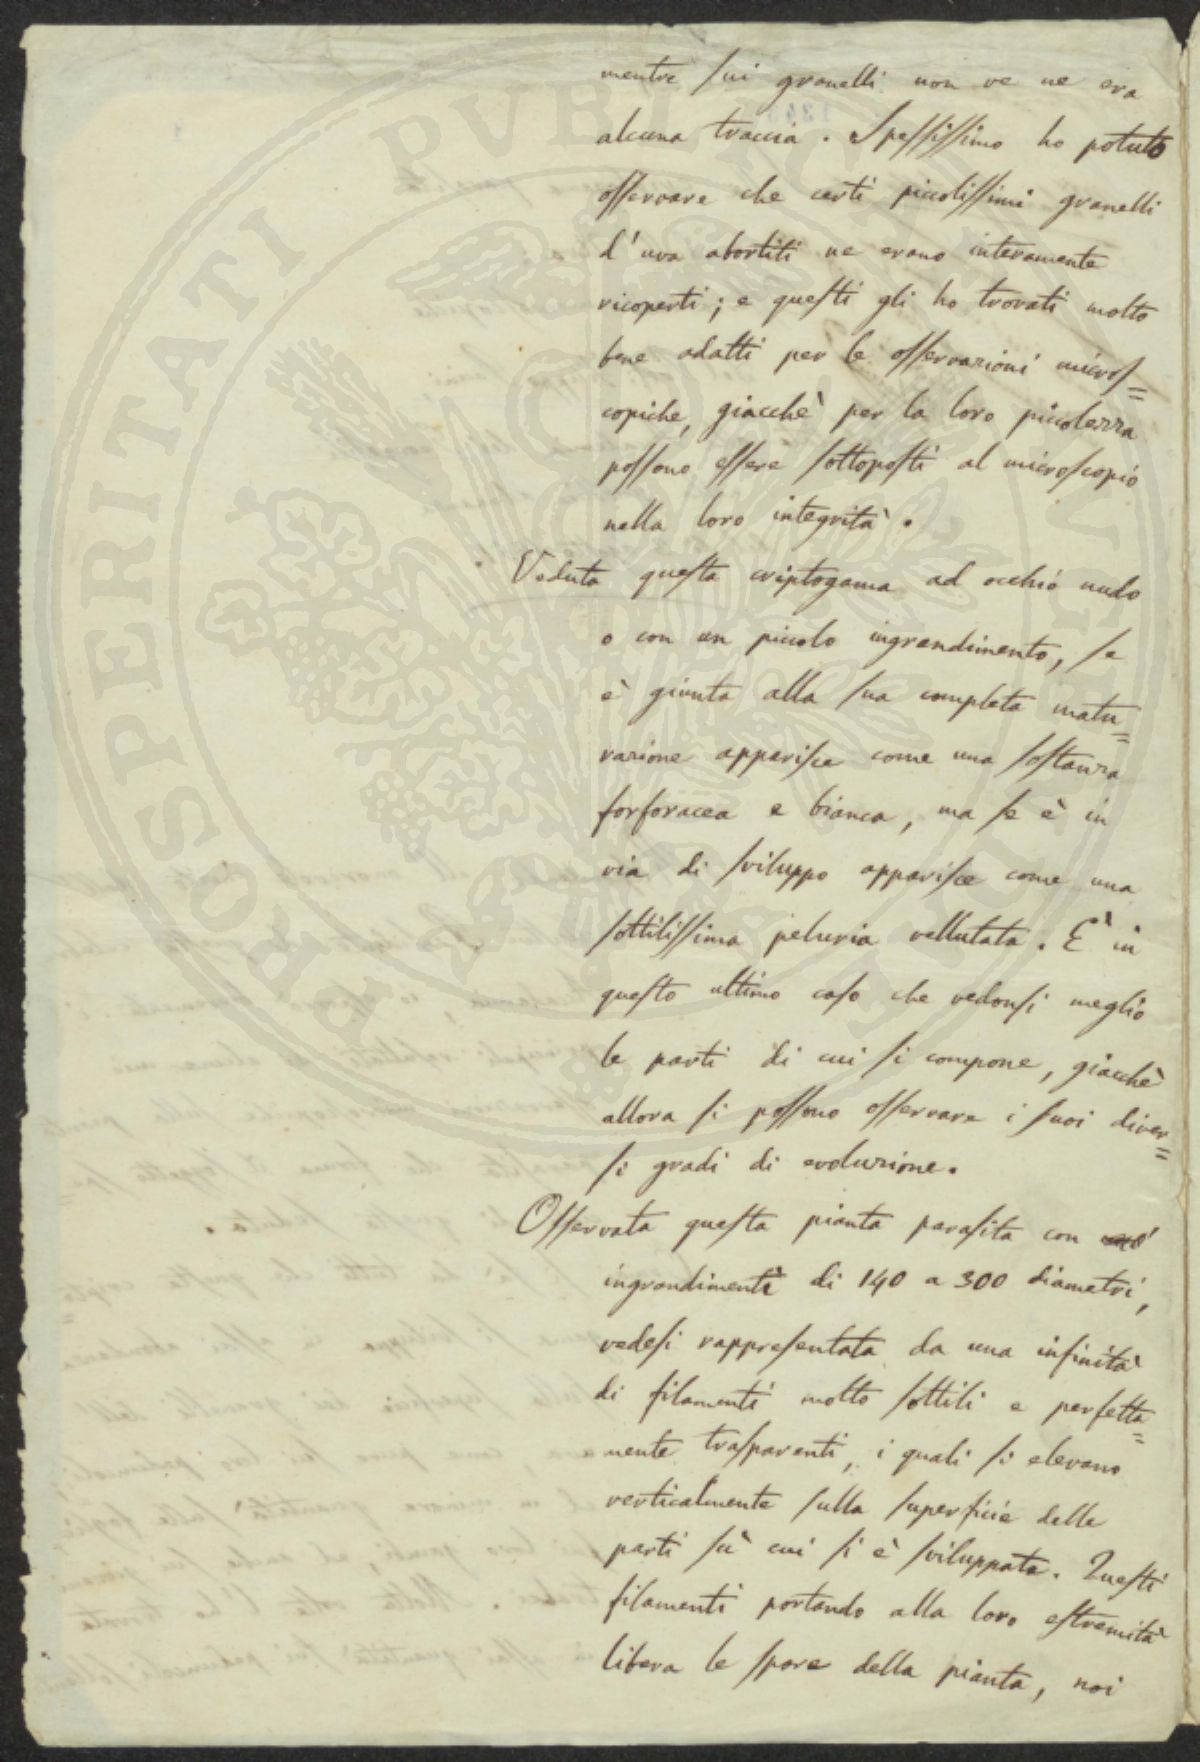 mentre sui granelli non ve ne era
alcuna traccia. Spessissimo ho potuto
osservare che certi piccolissimi granelli
d'uva abortiti ne erano interamente
ricoperti; e questi gli ho trovati molto
bene adatti per le osservazioni micros=
copiche, giacchè per la loro piccolezza
possono essere sottoposti al microscopio
nella loro integrità.
Veduta questa criptogama ad occhio nudo
o con un piccolo ingrandimento, se
è giunta alla sua completa matu=
razione apparisce come una sostanza
forforacea e bianca, ma se è in
via di sviluppo apparisce come una
sottilissima peluria vellutata. È in
questo ultimo caso che vedonsi meglio
le parti di cui si compone, giacchè
allora si possono osservare i suoi diver=
si gradi di evoluzione.
Osservata questa pianta parasita con
ingrandimenti di 140 a 300 diametri,
vedesi rappresentata da una infinità
di filamenti molto sottili e perfetta=
mente trasparenti, i quali si elevano
verticalmente sulla superficie delle
parti sù cui si è sviluppata. Questi
filamenti portando alla loro estremità
libera le spore della pianta, noi
PROSPERITATI PVBLICAE